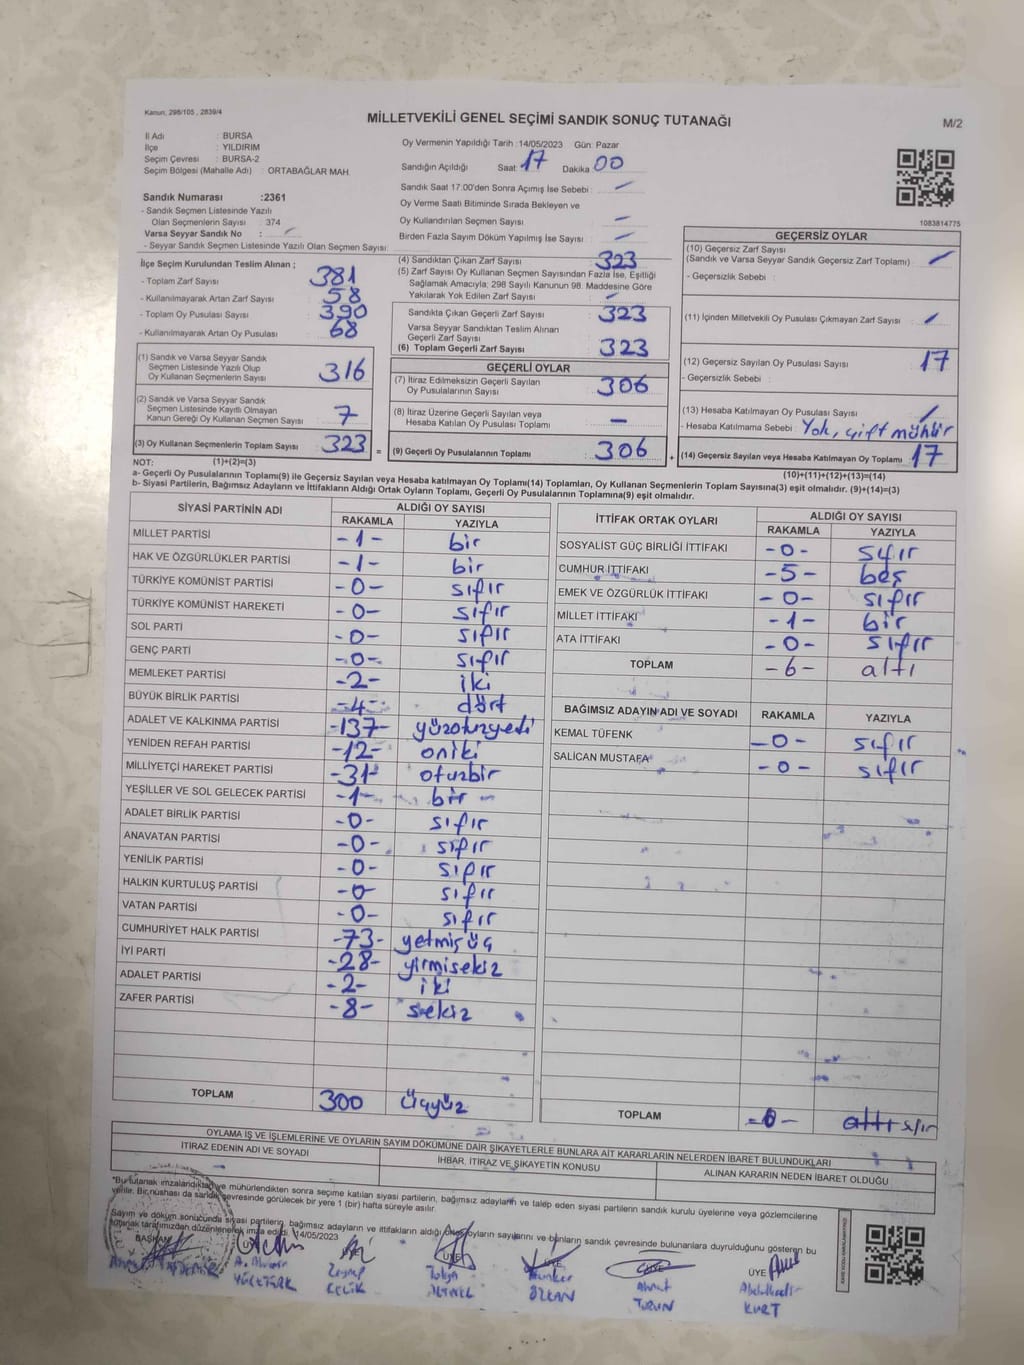 Kanun; 298/105 , 2839/4
MİLLETVEKİLİ GENEL SEÇİMİ SANDIK SONUÇ TUTANAĞI
M/2
İl Adı : BURSA
İlçe : YILDIRIM
Seçim Çevresi : BURSA-2
Seçim Bölgesi (Mahalle Adı) : ORTABAĞLAR MAH.
Oy Vermenin Yapıldığı Tarih :14/05/2023 Gün: Pazar
Sandığın Açıldığı Saat: 17 Dakika 00
Sandık Saat 17:00'den Sonra Açımış İse Sebebi :
Oy Verme Saati Bitiminde Sırada Bekleyen ve
Oy Kullandırılan Seçmen Sayısı :
Birden Fazla Sayım Döküm Yapılmış İse Sayısı :
1083814775
Sandık Numarası :2361
- Sandık Seçmen Listesinde Yazılı
Olan Seçmenlerin Sayısı : 374
Varsa Seyyar Sandık No :
- Seyyar Sandık Seçmen Listesinde Yazılı Olan Seçmen Sayısı:
İlçe Seçim Kurulundan Teslim Alınan ;
- Toplam Zarf Sayısı : 381
- Kullanılmayarak Artan Zarf Sayısı : 58
- Toplam Oy Pusulası Sayısı : 390
- Kullanılmayarak Artan Oy Pusulası : 68
(1) Sandık ve Varsa Seyyar Sandık
Seçmen Listesinde Yazılı Olup
Oy Kullanan Seçmenlerin Sayısı : 316
(2) Sandık ve Varsa Seyyar Sandık
Seçmen Listesinde Kayıtlı Olmayan
Kanun Gereği Oy Kullanan Seçmen Sayısı : 7
(3) Oy Kullanan Seçmenlerin Toplam Sayısı : 323
(4) Sandıktan Çıkan Zarf Sayısı : 323
(5) Zarf Sayısı Oy Kullanan Seçmen Sayısından Fazla İse, Eşitliği
Sağlamak Amacıyla; 298 Sayılı Kanunun 98. Maddesine Göre
Yakılarak Yok Edilen Zarf Sayısı :
Sandıkta Çıkan Geçerli Zarf Sayısı : 323
Varsa Seyyar Sandıktan Teslim Alınan
Geçerli Zarf Sayısı :
(6) Toplam Geçerli Zarf Sayısı : 323
GEÇERLİ OYLAR
(7) İtiraz Edilmeksizin Geçerli Sayılan
Oy Pusulalarının Sayısı : 306
(8) İtiraz Üzerine Geçerli Sayılan veya
Hesaba Katılan Oy Pusulası Toplamı : -
= (9) Geçerli Oy Pusulalarının Toplamı : 306
GEÇERSİZ OYLAR
(10) Geçersiz Zarf Sayısı
(Sandık ve Varsa Seyyar Sandık Geçersiz Zarf Toplamı) :
- Geçersizlik Sebebi :
(11) İçinden Milletvekili Oy Pusulası Çıkmayan Zarf Sayısı :
(12) Geçersiz Sayılan Oy Pusulası Sayısı : 17
- Geçersizlik Sebebi :
(13) Hesaba Katılmayan Oy Pusulası Sayısı :
- Hesaba Katılmama Sebebi : Yok, çift mühür
+ (14) Geçersiz Sayılan veya Hesaba Katılmayan Oy Toplamı : 17
NOT: (1)+(2)=(3)
(10)+(11)+(12)+(13)=(14)
a- Geçerli Oy Pusulaları Toplamı(9) ile Geçersiz Sayılan veya Hesaba katılmayan Oy Toplamı(14) Toplamları, Oy Kullanan Seçmenlerin Toplam Sayısına(3) eşit olmalıdır. (9)+(14)=(3)
b- Siyasi Partilerin, Bağımsız Adayların ve İttifakların Aldığı Ortak Oyların Toplamı, Geçerli Oy Pusulalarının Toplamına(9) eşit olmalıdır.
SİYASİ PARTİNİN ADI ALDIĞI OY SAYISI
RAKAMLA YAZIYLA
MİLLET PARTİSİ -1- bir
HAK VE ÖZGÜRLÜKLER PARTİSİ -1- bir
TÜRKİYE KOMÜNİST PARTİSİ -0- sıfır
TÜRKİYE KOMÜNİST HAREKETİ -0- sıfır
SOL PARTİ -0- sıfır
GENÇ PARTİ -0- sıfır
MEMLEKET PARTİSİ -2- iki
BÜYÜK BİRLİK PARTİSİ -4- dört
ADALET VE KALKINMA PARTİSİ -137- yüzotuzyedi
YENİDEN REFAH PARTİSİ -12- oniki
MİLLİYETÇİ HAREKET PARTİSİ -31- otuzbir
YEŞİLLER VE SOL GELECEK PARTİSİ -1- bir
ADALET BİRLİK PARTİSİ -0- sıfır
ANAVATAN PARTİSİ -0- sıfır
YENİLİK PARTİSİ -0- sıfır
HALKIN KURTULUŞ PARTİSİ -0- sıfır
VATAN PARTİSİ -0- sıfır
CUMHURİYET HALK PARTİSİ -73- yetmişüç
İYİ PARTİ -28- yirmisekiz
ADALET PARTİSİ -2- iki
ZAFER PARTİSİ -8- sekiz
TOPLAM 300 üçyüz
İTTİFAK ORTAK OYLARI ALDIĞI OY SAYISI
RAKAMLA YAZIYLA
SOSYALİST GÜÇ BİRLİĞİ İTTİFAKI -0- sıfır
CUMHUR İTTİFAKI -5- beş
EMEK VE ÖZGÜRLÜK İTTİFAKI -0- sıfır
MİLLET İTTİFAKI -1- bir
ATA İTTİFAKI -0- sıfır
TOPLAM -6- altı
BAĞIMSIZ ADAYIN ADI VE SOYADI RAKAMLA YAZIYLA
KEMAL TÜFENK -0- sıfır
SALİCAN MUSTAFA -0- sıfır
TOPLAM -0- sıfır
OYLAMA İŞ VE İŞLEMLERİNE VE OYLARIN SAYIM DÖKÜMÜNE DAİR ŞİKAYETLERLE BUNLARA AİT KARARLARIN NELERDEN İBARET BULUNDUKLARI
İTİRAZ EDENİN ADI VE SOYADI İHBAR, İTİRAZ VE ŞİKAYETİN KONUSU ALINAN KARARIN NEDEN İBARET OLDUĞU
*Bu tutanak imzalandıktan ve mühürlendikten sonra seçime katılan siyasi partilerin, bağımsız adayların ve talep eden siyasi partilerin sandık kurulu üyelerine veya gözlemcilerine
verilir. Bir nüshası da sandık çevresinde görülecek bir yere 1 (bir) hafta süreyle asılır.
Sayım ve döküm sonucunda siyasi partilerin, bağımsız adayların ve ittifakların aldığı oyların sayılarını ve bunların sandık çevresinde bulunanlara duyrulduğunu gösteren bu
tutanak tarafımızdan düzenlenerek imza edildi. 14/05/2023
BAŞKAN ÜYE ÜYE ÜYE
YÜCETÜRK Zeynep ÇELİK Tolga Hünkar ÖZKAN Ahmet TURUN Abdulkadir KURT